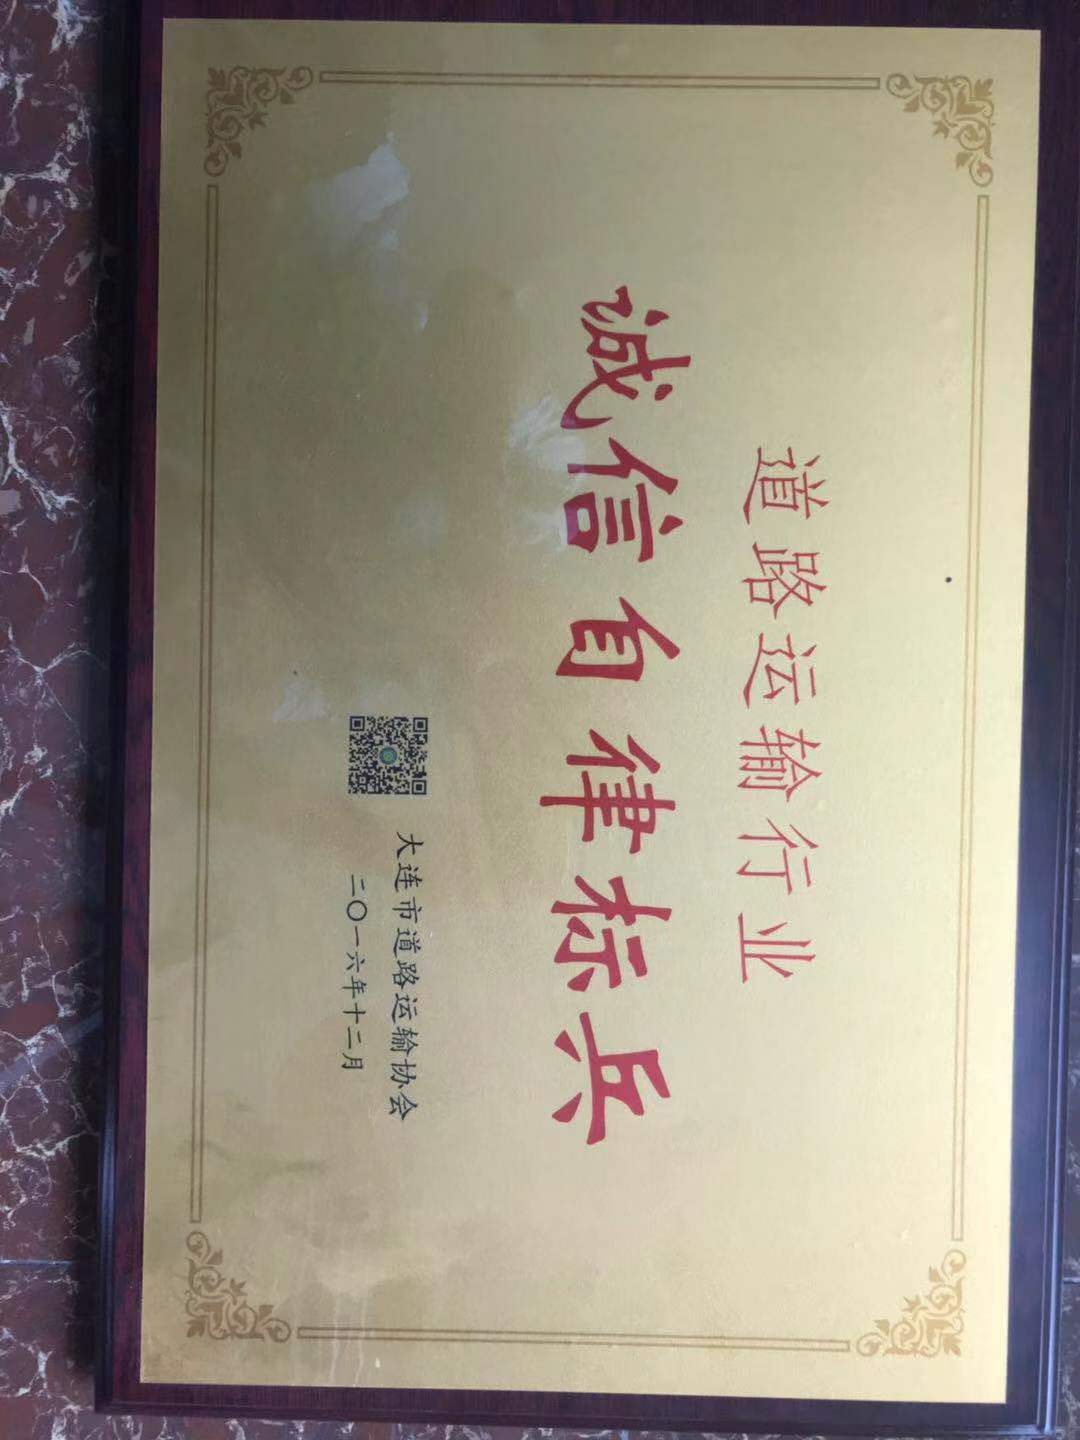 道路运输行业
诚信自律标兵
大连市道路运输协会
二〇一六年十二月